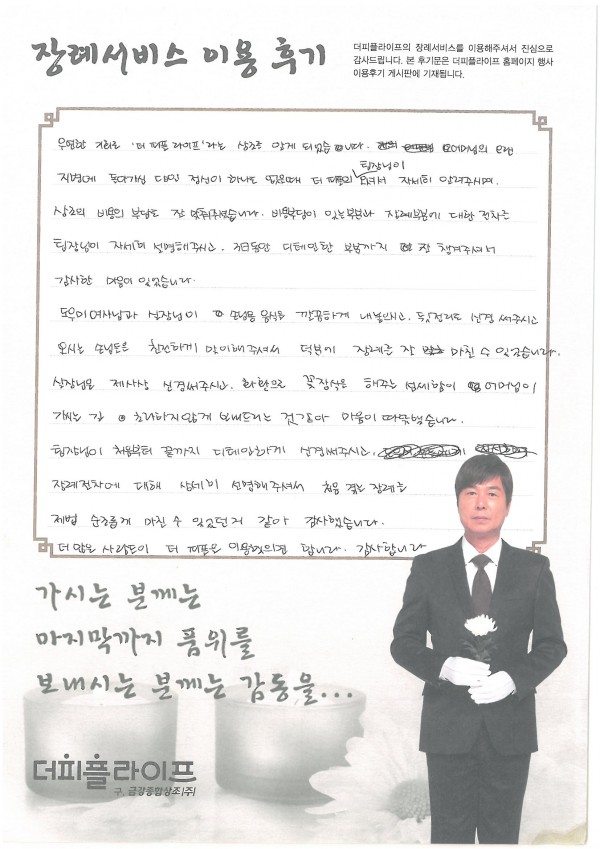 장례서비스 이용 후기
더피플라이프의 장례서비스를 이용해주셔서 진심으로
감사드립니다. 본 후기문은 더피플라이프 홈페이지 행사
이용후기 게시판에 기재됩니다.
우연한 기회로 '더 피플 라이프'라는 상조를 알게 되었습니다. 어머님의 오랜
팀장님이
지병에 돌아가심 당일 정신이 하나도 없을때 더 피플의 오셔서 자세히 알려주시며,
상조의 비용의 부담도 잘 맞춰주셨습니다. 비용부담이 있는부분과 장례부분에 대한 절차는
팀장님이 자세히 설명해주시고, 3일동안 디테일한 부분까지 잘 챙겨주셔서
감사한 마음이 있었습니다.
도우미여사님과 실장님이 손님용 음식도 깔끔하게 내놓으시고, 뒷정리도 신경 써주시고
오시는 손님들은 친절하게 맞이해주셔서 덕분에 장례를 잘 마친 수 있었습니다.
실장님은 제사상 신경써주시고, 화환으로 꽃장식을 해주는 섬세함이 어머님이
가시는 길 초라하지않게 보내드리는 것같아 마음이 따뜻했습니다.
팀장님이 처음부터 끝까지 디테일하게 신경써주시고,
장례절차에 대해 상세히 설명해주셔서 처음 겪는 장례를
제법 순조롭게 마친 수 있었던거 같아 감사했습니다.
더 많은 사람들이 더 피플을 이용했으면 합니다. 감사합니다
가시는 분께는
마지막까지 품위를
보내시는 분께는 감동을...
더피플라이프
구. 금강종합상조(주)